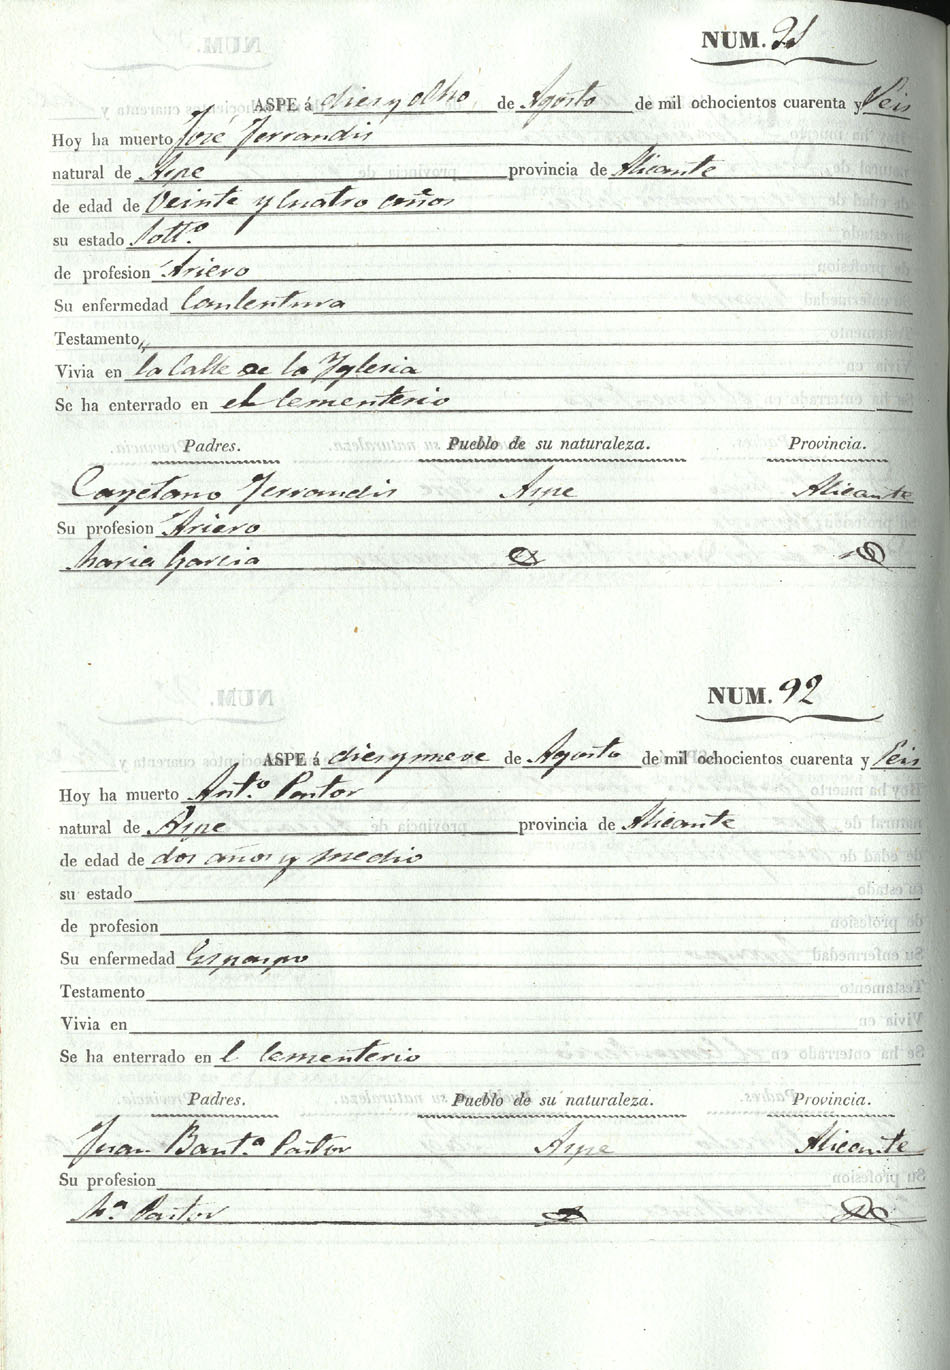 NUM. 91
ASPE á dies y ocho de Agosto de mil ochocientos cuarenta y Seis
Hoy ha muerto José Ferrandis
natural de Aspe provincia de Alicante
de edad de Veinte y Cuatro años
su estado Soltº
de profesion Ariero
Su enfermedad Calentura
Testamento
Vivia en la Calle de la Yglesia
Se ha enterrado en el Cementerio
Padres. Pueblo de su naturaleza. Provincia.
Cayetano Ferrandis Aspe Alicante
Su profesion Ariero
Maria Garcia
NUM. 92
ASPE á dies y nueve de Agosto de mil ochocientos cuarenta y Seis
Hoy ha muerto Antº Pastor
natural de Aspe provincia de Alicante
de edad de dos años y medio
su estado
de profesion
Su enfermedad
Testamento
Vivia en
Se ha enterrado en l Cementerio
Padres. Pueblo de su naturaleza. Provincia.
Juan Bautª Pastor Aspe Alicante
Su profesion
Mª Pastor